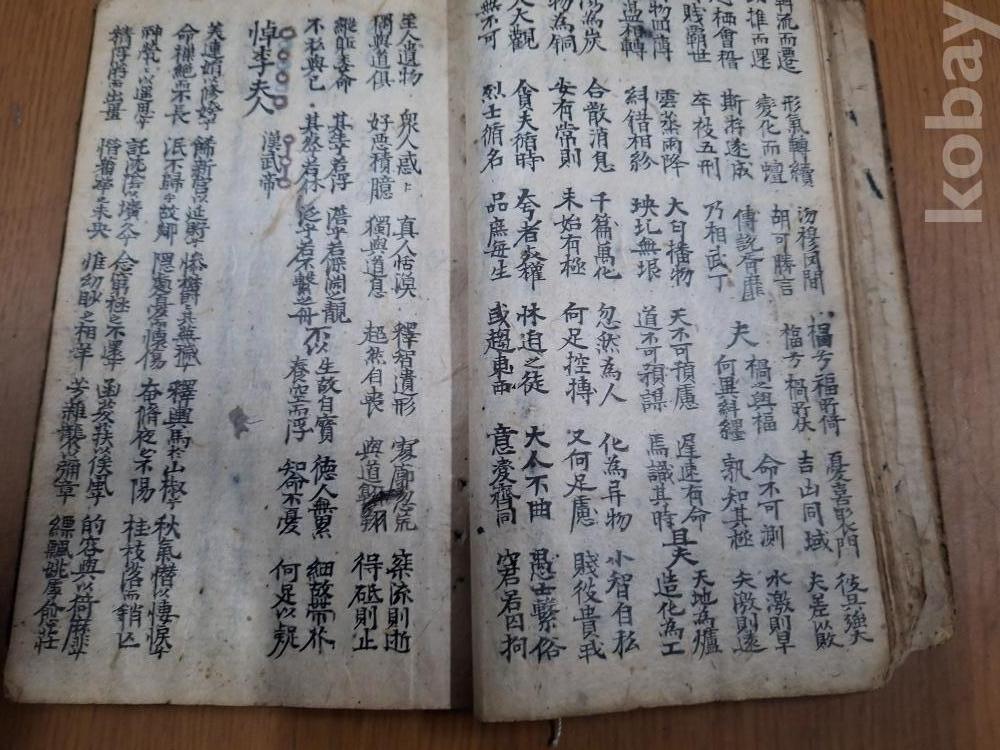 流而遷 形氣轉續 沕穆無間 禍兮福所倚 憂喜聚門 彼吳強大
推而還 變化而蟺 胡可勝言 福兮禍所伏 吉凶同域 夫差以敗
栖會稽 斯游遂成 傅說胥靡 夫禍之與福 命不可測 水激則旱
賤霸世 卒被五刑 乃相武丁 何異糾纆 孰知其極 矢激則遠
物回薄 雲蒸雨降 大勻播物 天不可預慮 遲速有命 且夫天地為爐
盪相轉 糾錯相紛 坱圠無垠 道不可預謀 焉識其時 造化為工
陽為炭 合散消息 千變萬化 忽然為人 化為異物 小智自私
物為銅 安有常則 未始有極 何足控摶 又何足慮 賤彼貴我
人大觀 貪夫徇時 夸者死權 怵迫之徒 大人不曲 愚士繫俗
無不可 烈士徇名 品庶每生 或趨東西 意變齊同 窘若囚拘
至人遺物 衆人惑々 真人恬漠 釋智遺形 寥廓忽荒 乘流則逝
獨與道俱 好惡積臆 獨與道息 超然自喪 與道翱翔 得砥則止
縱軀委命 其生若浮 澹乎若深淵之靚 不以生故自寶 德人無累 細故芥
不私與己 其死若休 泛乎若不繫之舟 養空而浮 知命不憂 何足以疑
悼李夫人 漢武帝
美連娟以修嫭兮 飾新宮以延貯兮 慘鬱々其無穢兮 釋輿馬於山椒兮 秋氣憯以悽淚兮
命樔絕而不長 泯不歸乎故鄉 隱處幽而懷傷 奄脩夜之不陽 桂枝落而銷亡
神煢々以遙思兮 託沈陰以壙久兮 念窮極之不還兮 函荾荴以俟風兮 的容與以猗靡兮
精浮游而出畺 惜蕃華之未央 惟幼眇之相羊 芳雜襲以彌章 縹飄姚虖愈莊
kobay